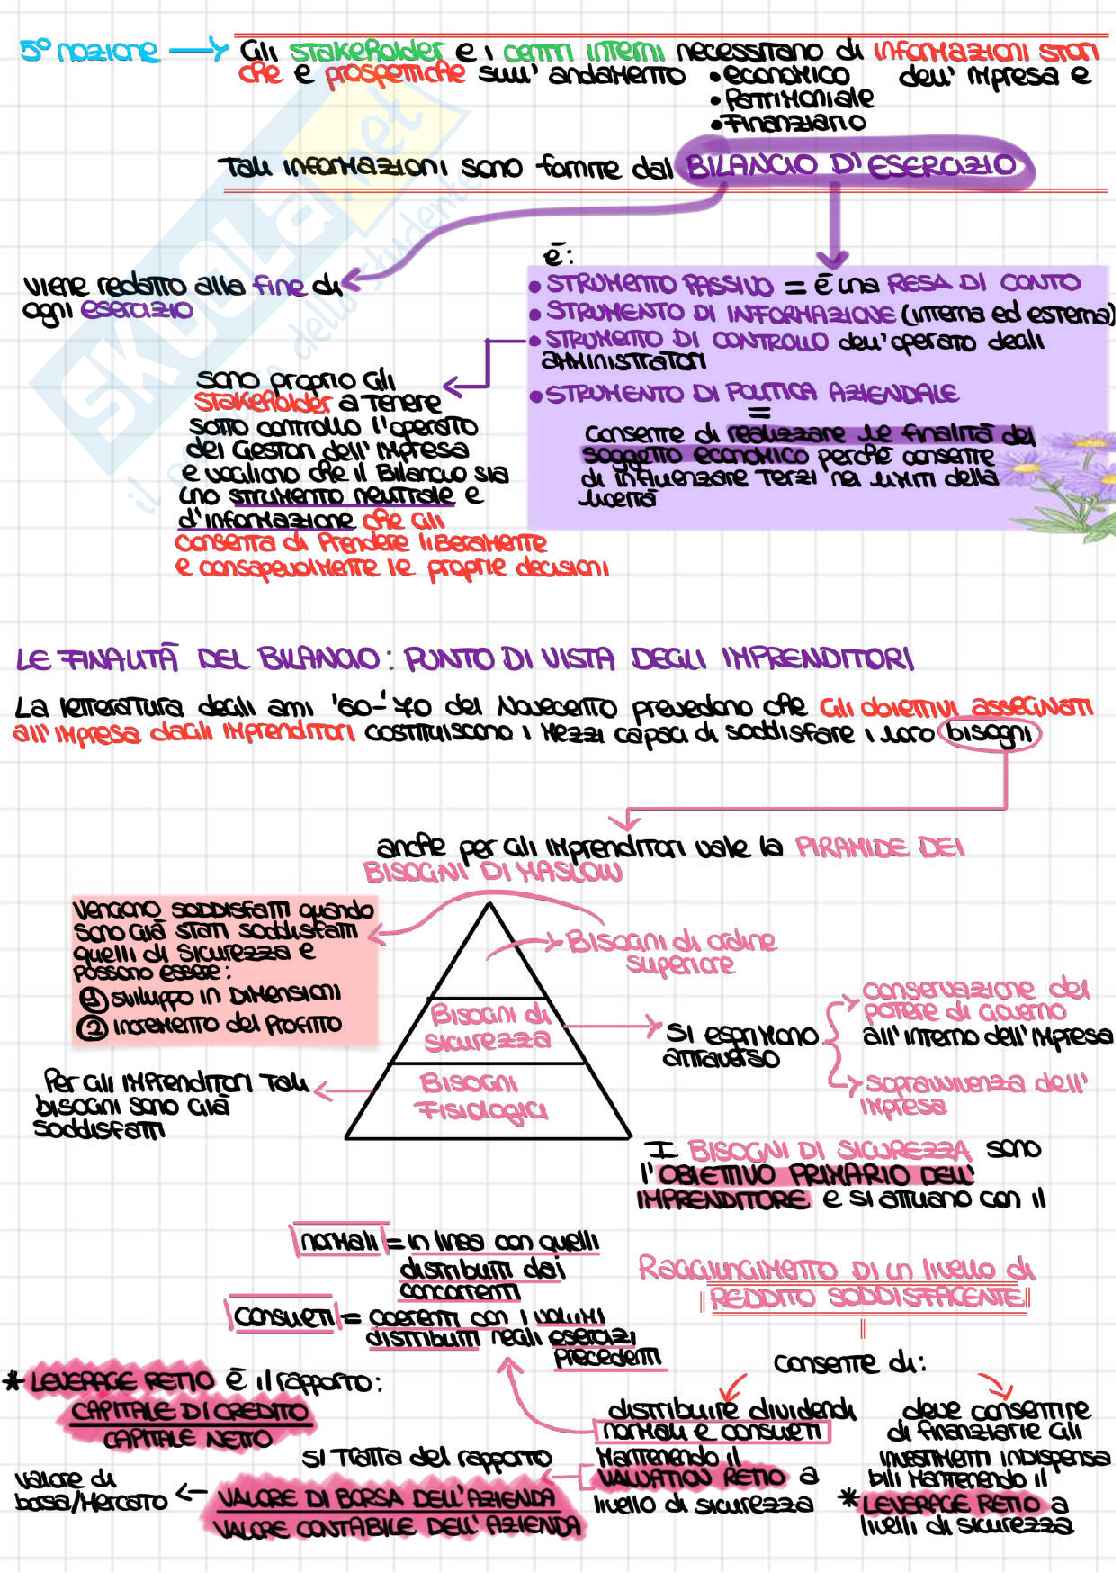 5° nozione → Gli stakeholder e i centri interni necessitano di informazioni stori
che e prospettiche sull' andamento • economico dell' impresa e
• patrimoniale
• finanziario
Tali informazioni sono fornite dal BILANCIO D' ESERCIZIO
viene redatto alla fine di
ogni esercizio
È:
• STRUMENTO PASSIVO = È una RESA DI CONTO
• STRUMENTO DI INFORMAZIONE (interna ed esterna)
• STRUMENTO DI CONTROLLO dell'operato degli
amministratori
• STRUMENTO DI POLITICA AZIENDALE
=
consente di realizzare le finalità del
soggetto economico perché consente
di influenzare terzi nei limiti della
liceità
sono proprio gli
stakeholder a tenere
sotto controllo l'operato
dei Gestori dell' impresa
e vogliono che il Bilancio sia
uno strumento neutrale e
d'informazione che gli
consenta di prendere liberamente
e consapevolmente le proprie decisioni
LE FINALITÀ DEL BILANCIO: PUNTO DI VISTA DEGLI IMPRENDITORI
La letteratura degli anni '60-'70 del Novecento prevedono che gli obiettivi assegnati
all' impresa dagli imprenditori costituiscono i mezzi capaci di soddisfare i loro bisogni
anche per gli imprenditori vale la PIRAMIDE DEI
BISOGNI DI MASLOW
Vengono soddisfatti quando
sono già stati soddisfatti
quelli di sicurezza e
possono essere:
① sviluppo in dimensioni
② incremento del profitto
Bisogni di ordine
superiore
Bisogni di
sicurezza
si esprimono
attraverso
conservazione del
potere di governo
all' interno dell' impresa
sopravvivenza dell'
impresa
Bisogni
Fisiologici
Per gli imprenditori tali
bisogni sono già
soddisfatti
I BISOGNI DI SICUREZZA sono
l'OBIETTIVO PRIMARIO DELL'
IMPRENDITORE e si attuano con il
Raggiungimento di un livello di
REDDITO SODDISFACENTE
consente di:
normali = in linea con quelli
distribuiti dai
concorrenti
consueti = coerenti con i volumi
distribuiti negli esercizi
precedenti
distribuire dividendi
normali e consueti
Mantenendo il
VALUATION RETIO a
livello di sicurezza
deve consentire
di finanziarie gli
investimenti indispensa
bili mantenendo il
* LEVERAGE RETIO a
livelli di sicurezza
* LEVERAGE RETIO È il rapporto:
CAPITALE DI CREDITO
CAPITALE NETTO
si tratta del rapporto
VALORE DI BORSA DELL'AZIENDA
VALORE CONTABILE DELL' AZIENDA
valore di
borsa/Mercato
SKUOLA.net